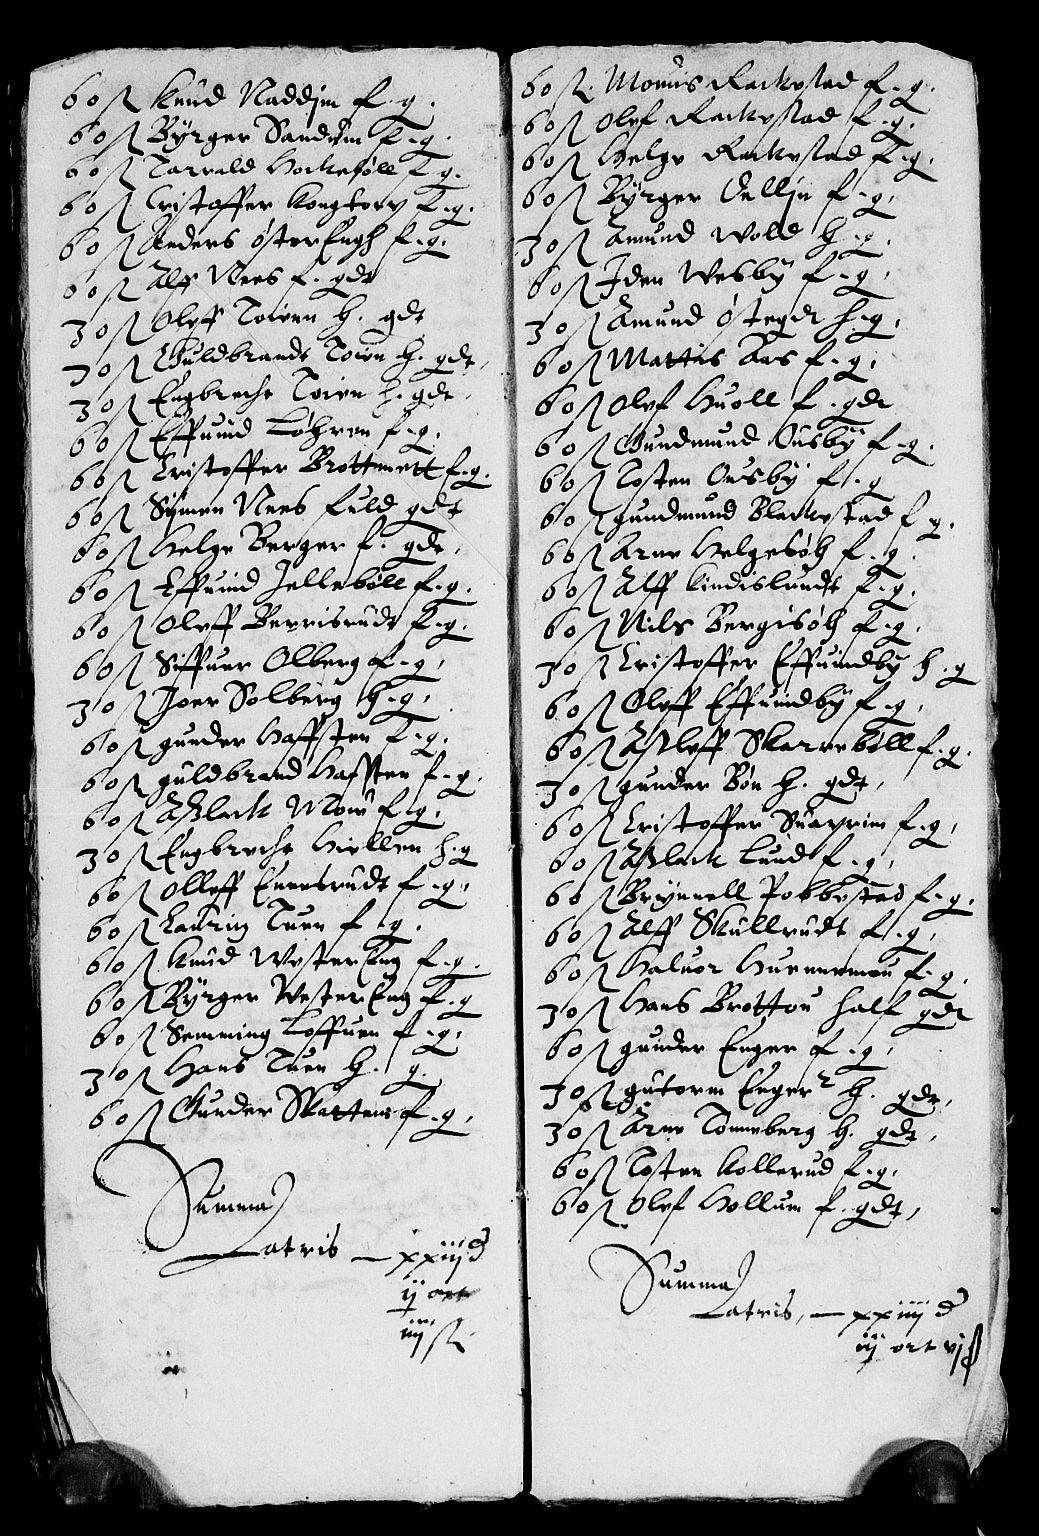 60 ß Knud Naddim f. g.
60 ß Byrger Sandum f. g.
60 ß Tarrald Hockesøll f. g.
60 ß Cristoffer Kongtorp f. g.
60 ß Anders Øster Engh f. g.
60 ß Alff Nees f. gdt
30 ß Oleff Toien H. gdt
30 ß Guldbrandt Toien H. gdt,
30 ß Engbrecht Toien h. gdt.
60 ß Effuind Løhren f. g.
60 ß Cristoffer Brottmett f. g.
60 ß Symen Nees fuld gdt
60 ß Helge Berger f. gdt.
60 ß Effuind Jellebøll f. g.
60 ß Oleff Berrisrudt f. g.
60 ß Siffuer Olberg f. g.
30 ß Joer Solberg h. g.
60 ß gunder Haffsten f. g.
60 ß guldbrand Haffsten f. g.
60 ß Aßlack Moiü f. g.
30 ß Engbrecht Hiellen h. g
60 ß Olleff Enersrudt f. g.
60 ß Lauritz Tuen f. g.
60 ß Knud Wester Eng f. g.
60 ß Byrger Wester Eng f. g
60 ß Semming Loffuen f. g.
30 ß Hans Tuen H. g.
60 ß Gunder Skottens f. g.
Summa
Latris — xxiij d
ij ort
iiij ß
60 ß. Monns Rackestad f. g.
60 ß Olef Rackestad f. g.
60 ß Helge Rackestad f. g.
60 ß Byrger Dellin f. g.
30 ß Amund Wold h. g.
60 ß Iden Wesby f. g.
30 ß Amund Østegd h. g.
60 ß Mattis Aas f. g.
60 ß Olef Huoll f. gdt
60 ß Gundmund Ousby f. g.
60 ß Tosten Ousby f. g
60 ß gundmund Blackestad f g.
60 ß Arne Helgesøh f. g.
60 ß Alff Kindislundt f. g.
60 ß Nils Bergisøh f. g.
30 ß Cristoffer Effuindby h. g
60 ß Oleff Effuindby f. g.
60 ß Aßleff Skarrebøll f. g.
30 ß gunder Bøn h. gdt,
60 ß Cristoffer Suarrim f. g,
60 ß Aßlack Lund f. g,
60 ß Brynnell Pobbestad f. g.
60 ß Alff Skullrudt f. g.
60 ß Haluor Hunnermou f. g.
30 ß Hans Brottou half gdt
60 ß gunder Enger f. g,
30 ß gutorm Enger h. gdt,
30 ß Arne Tomeberg h. gdt,
60 ß Tosten Kollerud f. g.
60 ß Olef Hollum f. gdt,
Summa
Latris, — xxiiij d
iij ort vj ß